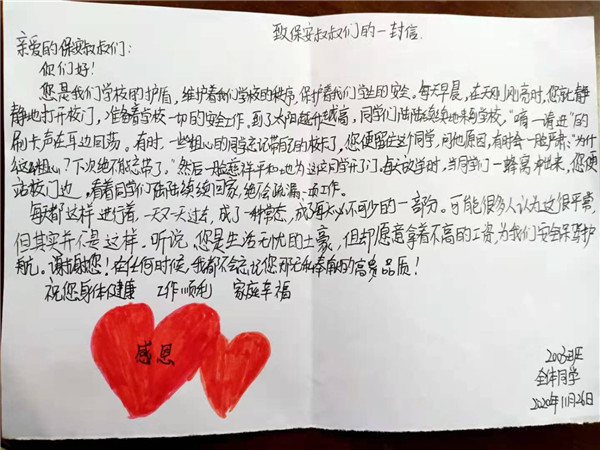 致保安叔叔们的一封信.
亲爱的保安叔叔们:
你们好!
您是我们学校的护盾,维护着我们学校的秩序,保护着我们学生的安全。每天早晨,在天刚刚亮时,您就静
静地打开校门,准备着学校一切的安全工作。到了太阳越升越高,同学们陆陆续续地来到学校。"嘀一请进"的
刷卡声在耳边回荡。有时,一些粗心的同学忘记带了的校卡了,您便留住这个同学,问他原因,有时会一脸严肃:"为什
么这么粗心?下次绝不能忘带了。"然后一脸慈祥平和地为这位同学开了门。每次放学时,当同学们一蜂窝冲出来,您便
站校门边,看着同学们陆陆续续回家,绝不会疏漏一次工作。
每天都这样进行着,一天又一天过去,成了一种常态,成了每天必不可少的一部分。可能很多人认为这很平常,
但其实并不是这样。听说,您是生活无忧的土豪,但却愿意拿着不高的工资,为我们安全保驾护
航。谢谢您!在任何时候,我都不会忘记您那无私奉献的高贵品质!
祝您身体健康 工作顺利 家庭幸福
感恩
2003班
全体同学
2020年11月26日